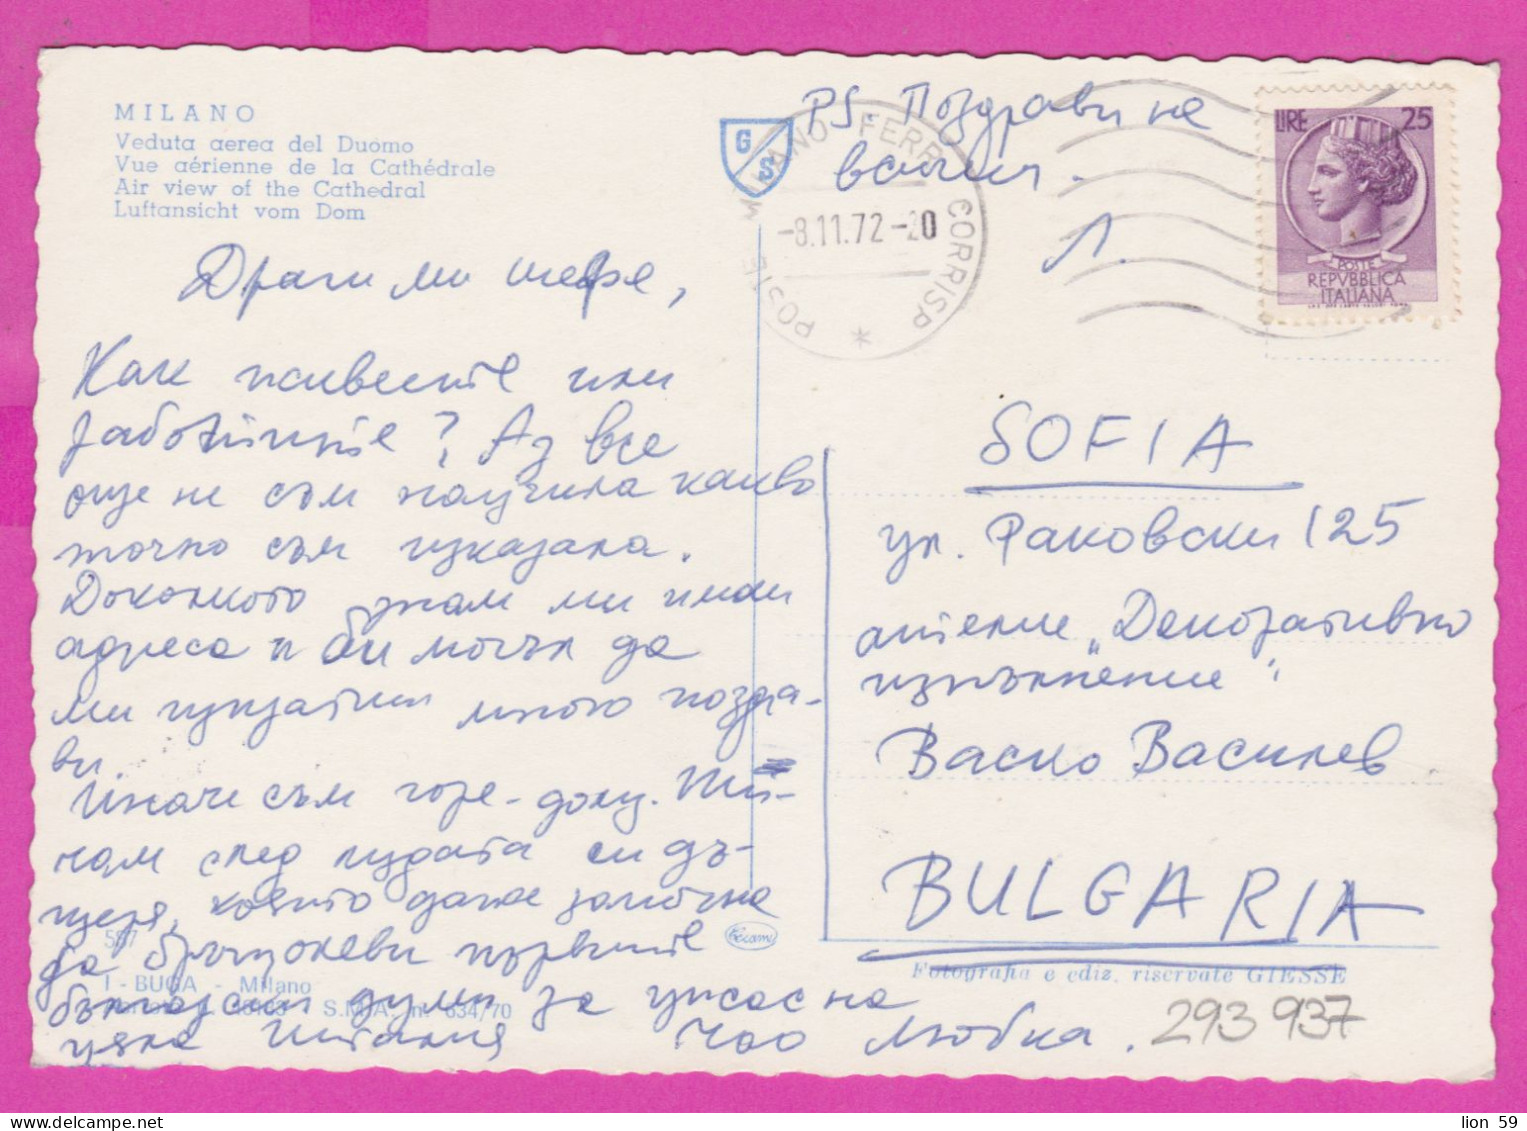 MILANO
Veduta aerea del Duomo
Vue aérienne de la Cathédrale
Air view of the Cathedral
Luftansicht vom Dom
G S
PS. Поздрави на
всички.
Л.
POSTE MILANO FERR. CORRISP *
-8.11.72-20
LIRE 25
POSTE
REPVBBLICA
ITALIANA
Драги ми шефе,
Как живеете или
работите? Аз все
още не съм научила какво
точно съм изказала.
Доколкото знам ми имаш
адреса и би могъл да
ми изпратиш много поздра-
ви.
Иначе съм горе-долу.
чам след лудата си дъ-
щеря, която даже започна
да бръщолеви първите
български думи за ужас на
цяла Италия Чао Любка.
SOFIA
ул. Раковски 125
ателие „Декоративно
изпълнение".
Васко Василев
BULGARIA
587
I - BUGA - Milano
S.M.A. n. 634/70
Fotografia e ediz. riservate GIESSE
293 937
lion 59